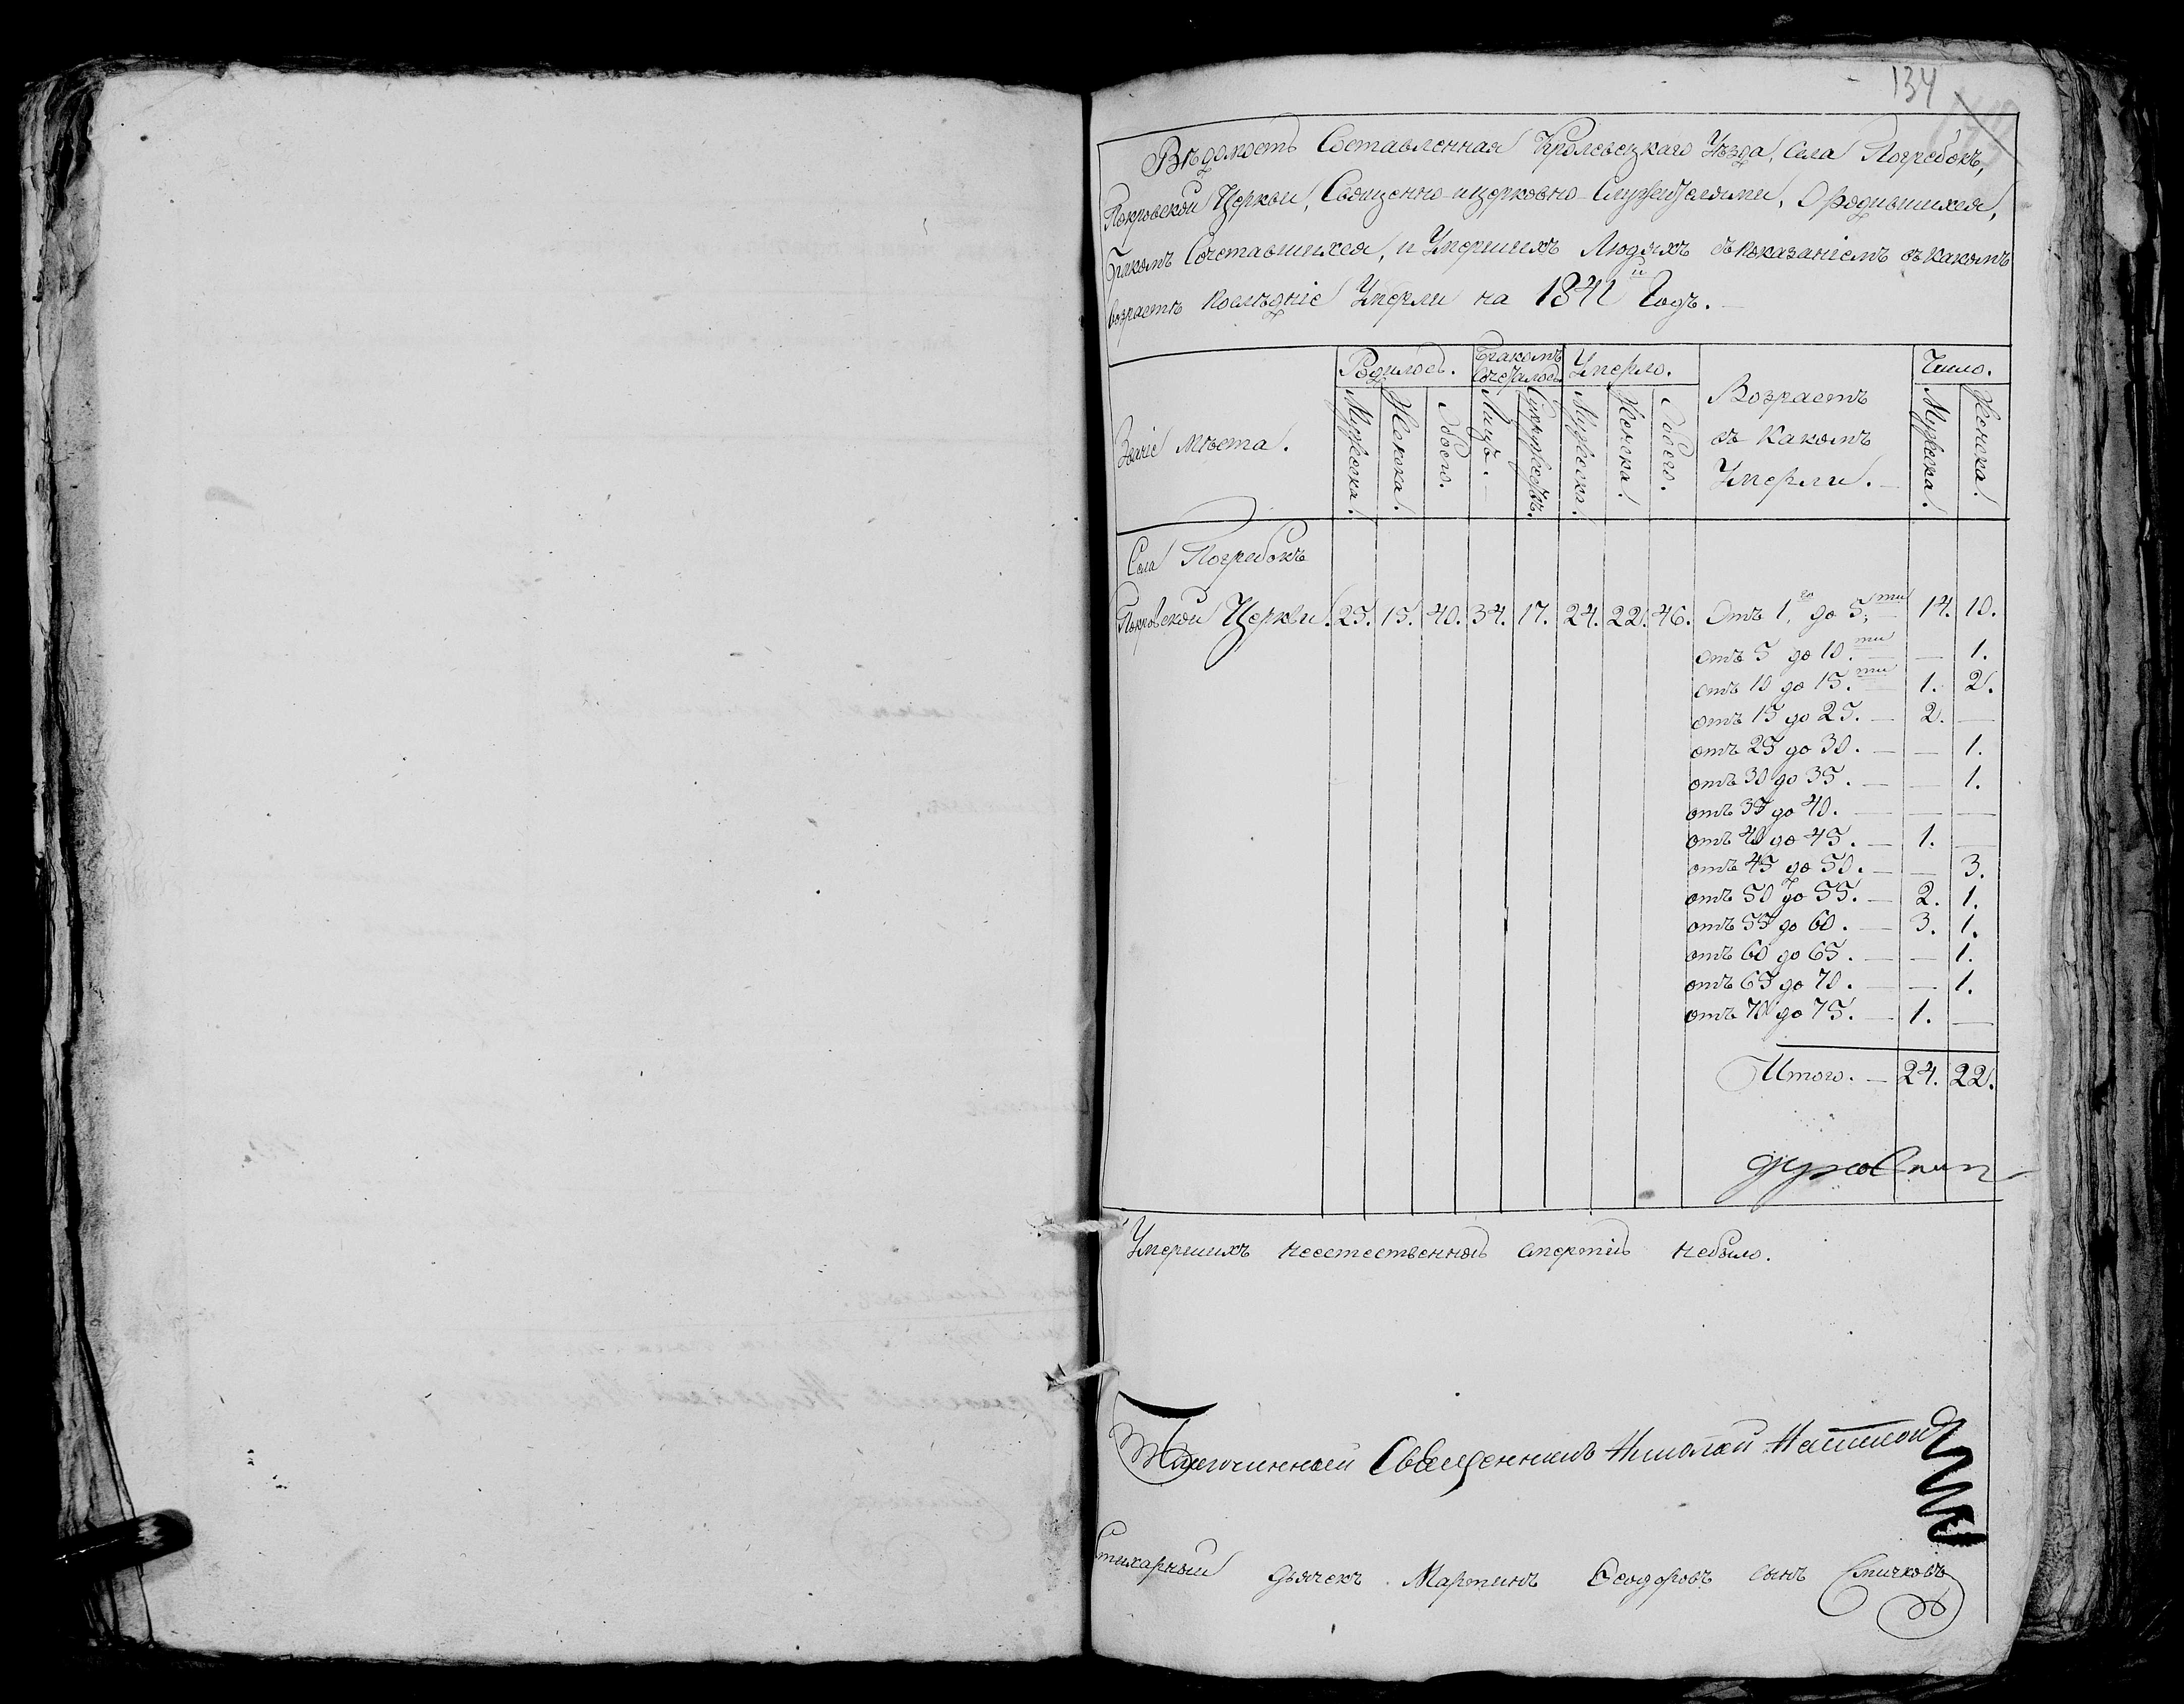 134
Вѣдомость Составленная Кролевецкаго Уѣзда, Села Погребокъ,
Покровской Церкви, Священно-ицерковно-Служителями, Ородившихся,
Бракомъ Сочетавшихся, и Умершихъ Людяхъ съпоказаніемъ въкакомъ
возрастѣ послѣдніе Умерли на 1841й Годъ.
Званіе мѣста. Родилось. Бракомъ Сочеталось Умерло. Возрастъ въ какомъ Умерли. Число.
Мужеска. Женска. Обоего. Лицъ. Супружествъ. Мужеска. Женска. Обоего. Мужеска. Женска.
Села Погребокъ
Покровской Церкви. 25. 15. 40. 34. 17. 24. 22. 46. Отъ 1го до 5.ти 14. 10.
отъ 5 до 10.ти — 1.
отъ 10 до 15.ти 1. 2.
отъ 15 до 25. — 2. —
отъ 25 до 30. — — 1.
отъ 30 до 35. — — 1.
отъ 35 до 40. — — —
отъ 40 до 45. — 1. —
отъ 45 до 50. — — 3.
отъ 50 до 55. — 2. 1.
отъ 55 до 60. — 3. 1.
отъ 60 до 65. — — 1.
отъ 65 до 70. — — 1.
отъ 70 до 75. — 1. —
Итого. — 24. 22.
Умершихъ неестественной смертію небыло.
Священникъ Николай
Стихарный дьячекъ Мартинъ Ѳеодоровъ сынъ Смичковъ